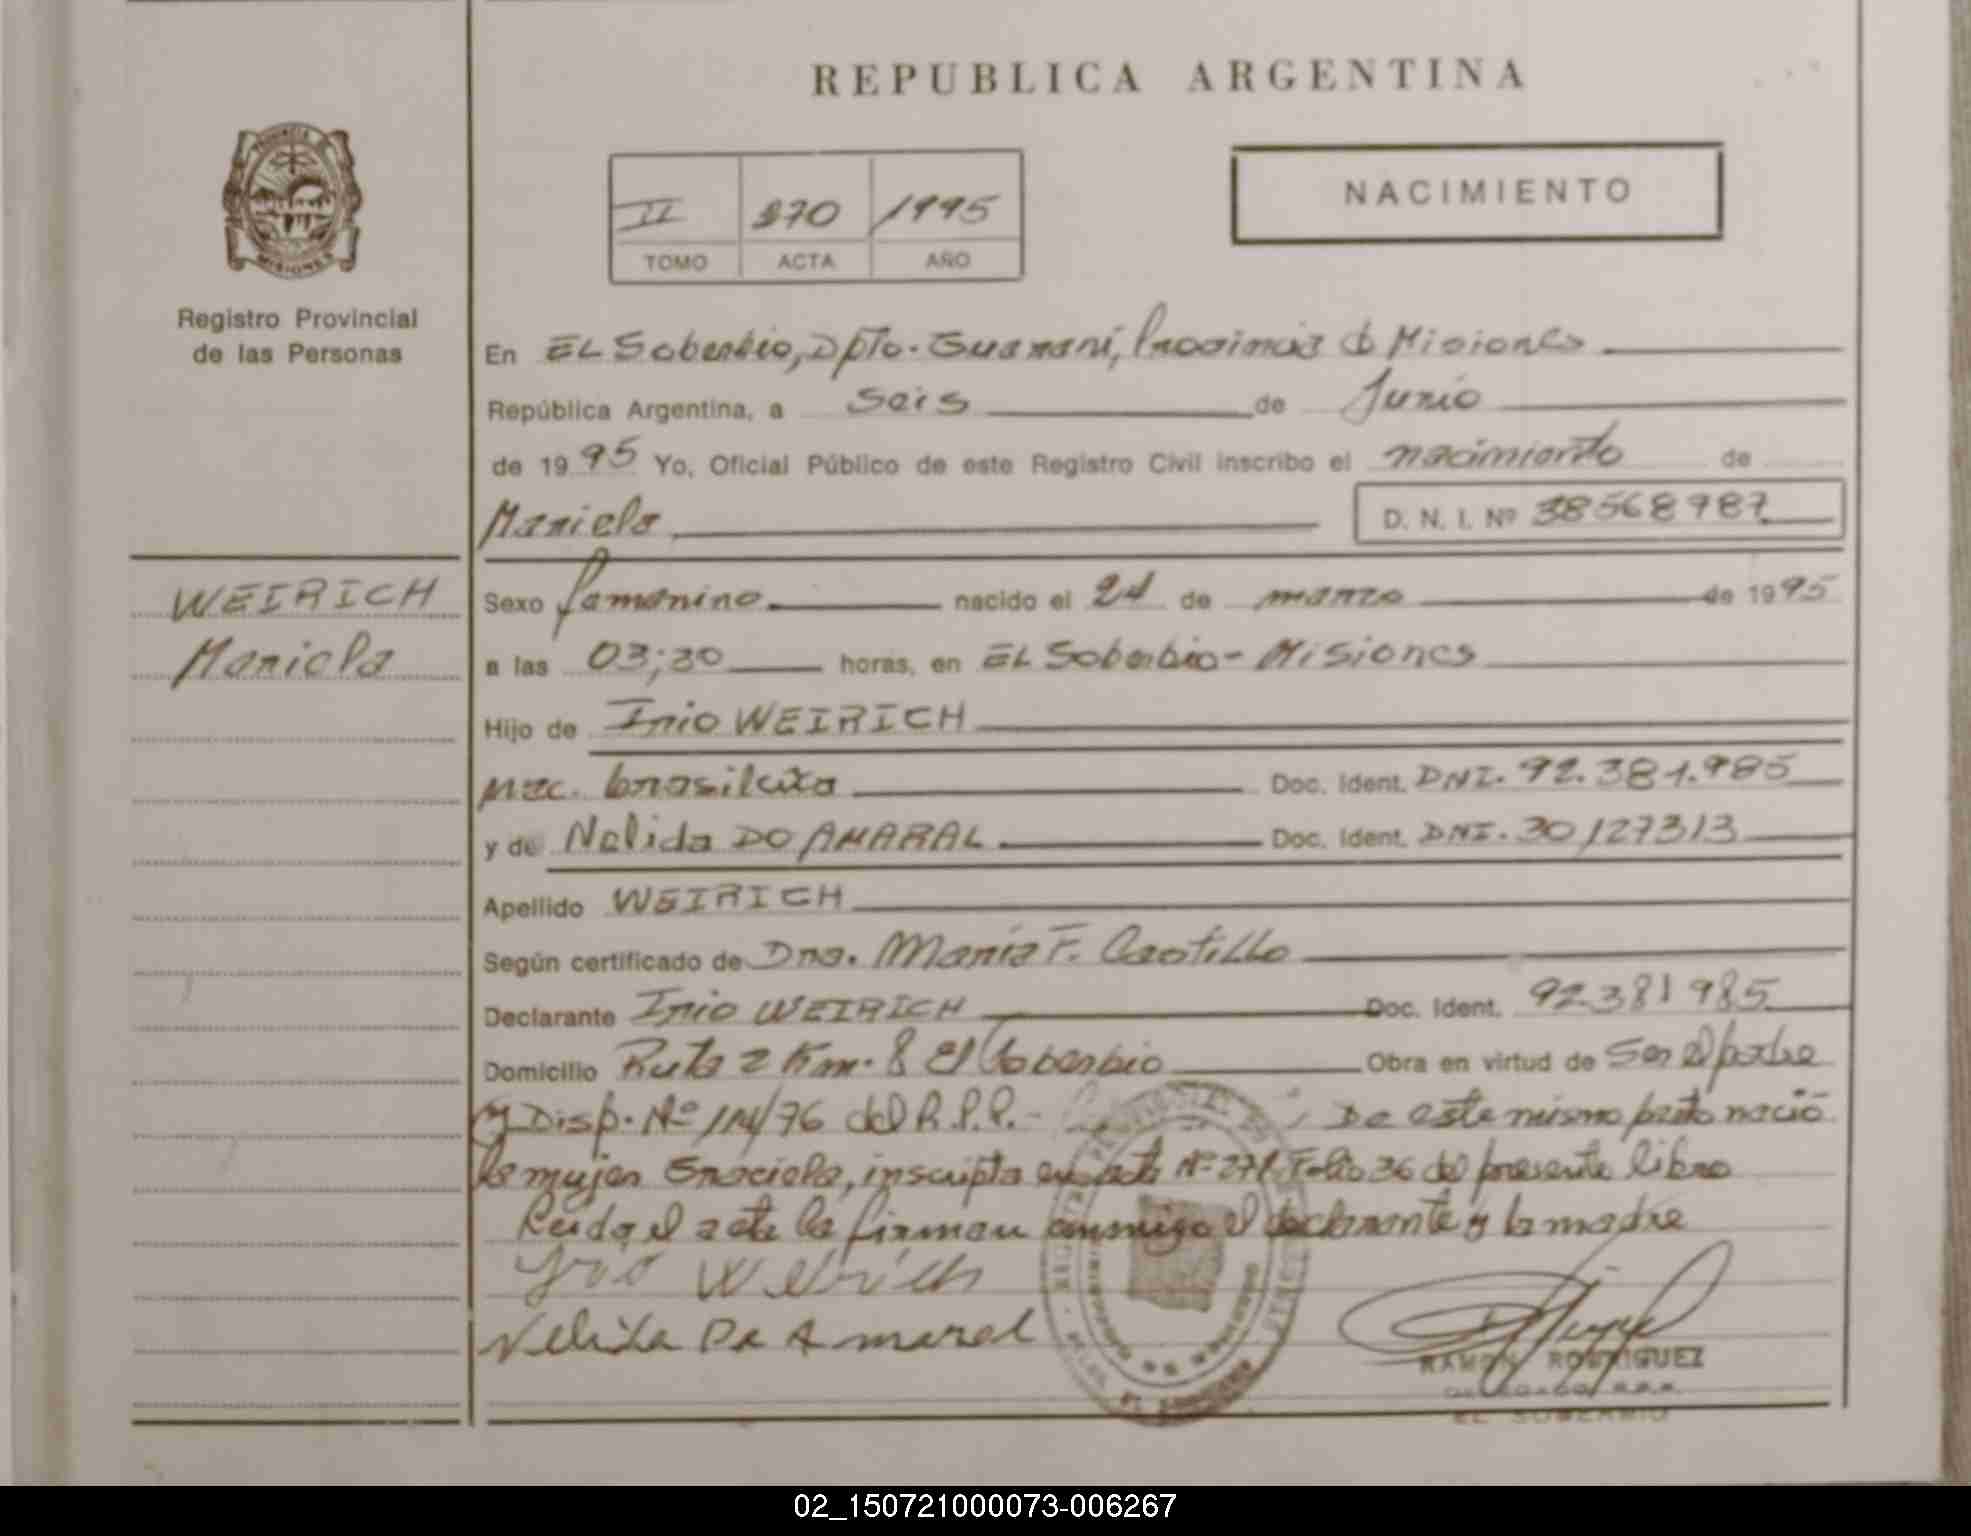 REPUBLICA ARGENTINA
PROVINCIA DE
MISIONES
Registro Provincial
de las Personas
II 270 1995
TOMO ACTA AÑO
NACIMIENTO
En EL Soberbio, Dpto. Guaraní, Provincia de Misiones
República Argentina, a seis de Junio
de 1995 Yo, Oficial Público de este Registro Civil inscribo el nacimiento de
Mariela D. N. I. Nº 38568787
WEIRICH
Mariela
Sexo femenino nacido el 24 de marzo de 1995
a las 03;30 horas, en EL Soberbio - Misiones
Hijo de Irio WEIRICH
nac. brasileira Doc. Ident. DNI. 92.381.985
y de Nelida DO AMARAL Doc. Ident. DNI. 30127313
Apellido WEIRICH
Según certificado de Dra. María F. Castillo
Declarante Irio WEIRICH Doc. Ident. 92381985
Domicilio Ruta 2 Km. 8 El Soberbio Obra en virtud de Ser el padre
y Disp. Nº 114/76 del R.P.P. - De este mismo parto nació
la mujer Graciela, inscripta en acta Nº 271 Folio 36 del presente libro
Leida el acta la firman conmigo el declarante y la madre
Irio Weirich
Nelida Do Amaral
RAMON RODRIGUEZ
EL SOBERBIO
02_150721000073-006267